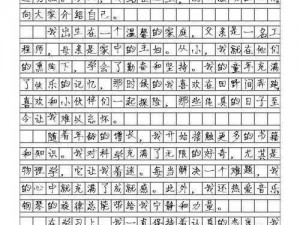 向大家介绍自己。
我出生在一个温馨的家庭，父亲是一名工
程师，母亲是家中的主妇。从小，我就在他们的
熏陶下，学会了勤奋和坚持。我的童年充满
了快乐的记忆，那时候的我喜欢在田野间奔跑，
喜欢和小伙伴们一起探险，那些纯真的日子至
今让我难以忘怀。
随着年龄的增长，我开始接触更多的书籍
和知识。我对科学充满了无限的好奇，尤其是
物理学，它让我着迷。每当解决一个难题，我
的心中就充满了成就感。此外，我还热爱音乐
钢琴的旋律总能带给我宁静和力量。
在学习上，我一直保持着认真的态度